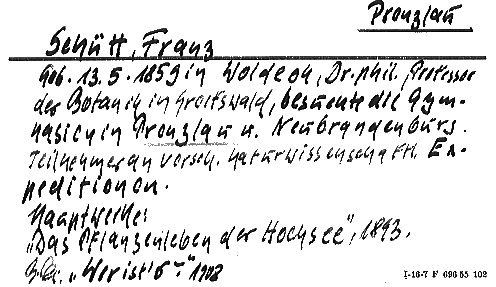 Prenzlau
Schütt, Franz
Geb. 13.5.1859 in Woldegk, Dr. phil., Professor
der Botanik in Greifswald, besuchte die Gym-
nasien in Prenzlau u. Neubrandenburg.
Teilnehmer an versch. naturwissenschaftl. Ex-
peditionen.
Hauptwerke:
„Das Pflanzenleben der Hochsee", 1893.
„Wer ist's -" 1908
I-16-7 F 696 55 102